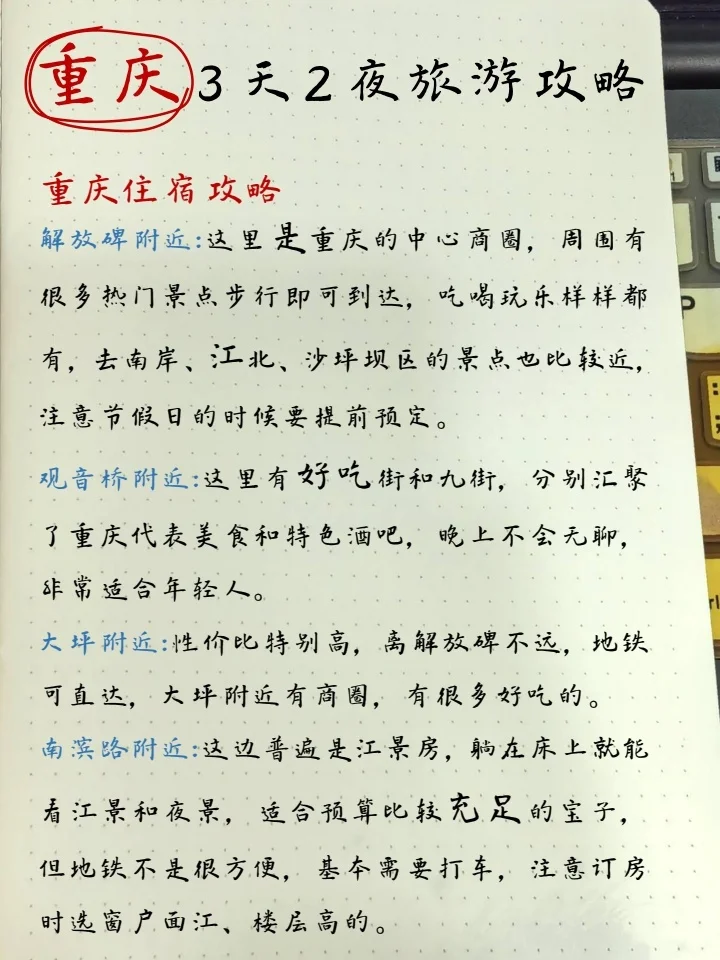 重庆3天2夜旅游攻略
重庆住宿攻略
解放碑附近:这里是重庆的中心商圈，周围有
很多热门景点步行即可到达，吃喝玩乐样样都
有，去南岸、江北、沙坪坝区的景点也比较近，
注意节假日的时候要提前预定。
观音桥附近:这里有好吃街和九街，分别汇聚
了重庆代表美食和特色酒吧，晚上不会无聊，
非常适合年轻人。
大坪附近:性价比特别高，离解放碑不远，地铁
可直达，大坪附近有商圈，有很多好吃的。
南滨路附近:这边普遍是江景房，躺在床上就能
看江景和夜景，适合预算比较充足的宝子，
但地铁不是很方便，基本需要打车，注意订房
时选窗户面江、楼层高的。
P